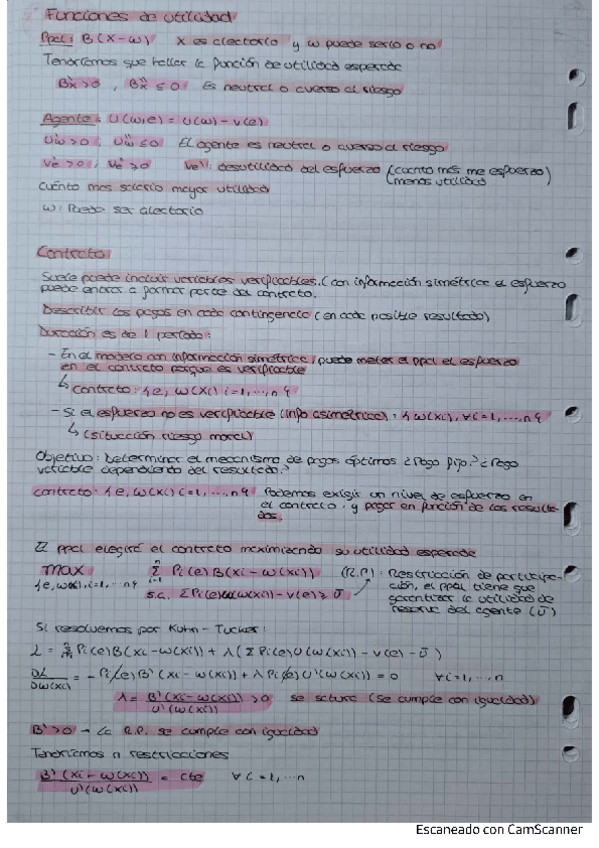 Funciones de utilidad
Ppal: B(X-w) x es aleatorio y w puede serlo o no
Tendríamos que hallar la función de utilidad esperada
B'x > 0, B''x ≤ 0 Es neutral o averso al riesgo
Agente: U(w,e) = u(w) - v(e)
U'w > 0; U''w ≤ 0 El agente es neutral o averso al riesgo
V'e > 0; V''e ≥ 0 desutilidad del esfuerzo (cuanto más me esfuerzo)
menos utilidad
cuánto mas salario mayor utilidad
w: Puede ser aleatorio
Contrato
Suele puede incluir variables verificables. (con información simétrica el esfuerzo
puede entrar a formar parte del contrato.
Describir los pagos en cada contingencia (en cada posible resultado)
Duración es de 1 periodo:
- En el modelo con información simétrica, puede meter el ppal el esfuerzo
en el contrato porque es verificable
↳ contrato: {e, w(xi) i=1,...,n}
- Si el esfuerzo no es verificable (info asimétrica): {w(xi), ∀i=1,...,n}
↳ (situación riesgo moral)
Objetivo: Determinar el mecanismo de pagos óptimos ¿Pago fijo? ¿Pago
variable dependiendo del resultado?
contrato: {e, w(xi) i=1,...,n} Podemos exigir un nivel de esfuerzo en
el contrato, y pagar en función de los resulta-
dos.
El ppal elegirá el contrato maximizando su utilidad esperada
max Σ Pi(e) B(xi - w(xi)) (R.P): Restricción de participa-
{e, w(xi), i=1,...n} s.a. Σ Pi(e) u(w(xi)) - v(e) ≥ Ū ción, el ppal tiene que
garantizar la utilidad de
reserva del agente (Ū)
Si resolvemos por Kuhn-Tucker:
L = Σ Pi(e) B(xi - w(xi)) + λ(Σ Pi(e) U(w(xi)) - v(e) - Ū)
∂L/∂w(xi) = -Pi(e) B'(xi - w(xi)) + λ Pi(e) U'(w(xi)) = 0 ∀i=1,...n
λ = B'(xi - w(xi))/U'(w(xi)) > 0 se satura (se cumple con igualdad)
B' > 0 → la R.P. se cumple con igualdad
Tendríamos n restricciones
B'(xi - w(xi))/U'(w(xi)) = cte ∀i=1,...n
Escaneado con CamScanner